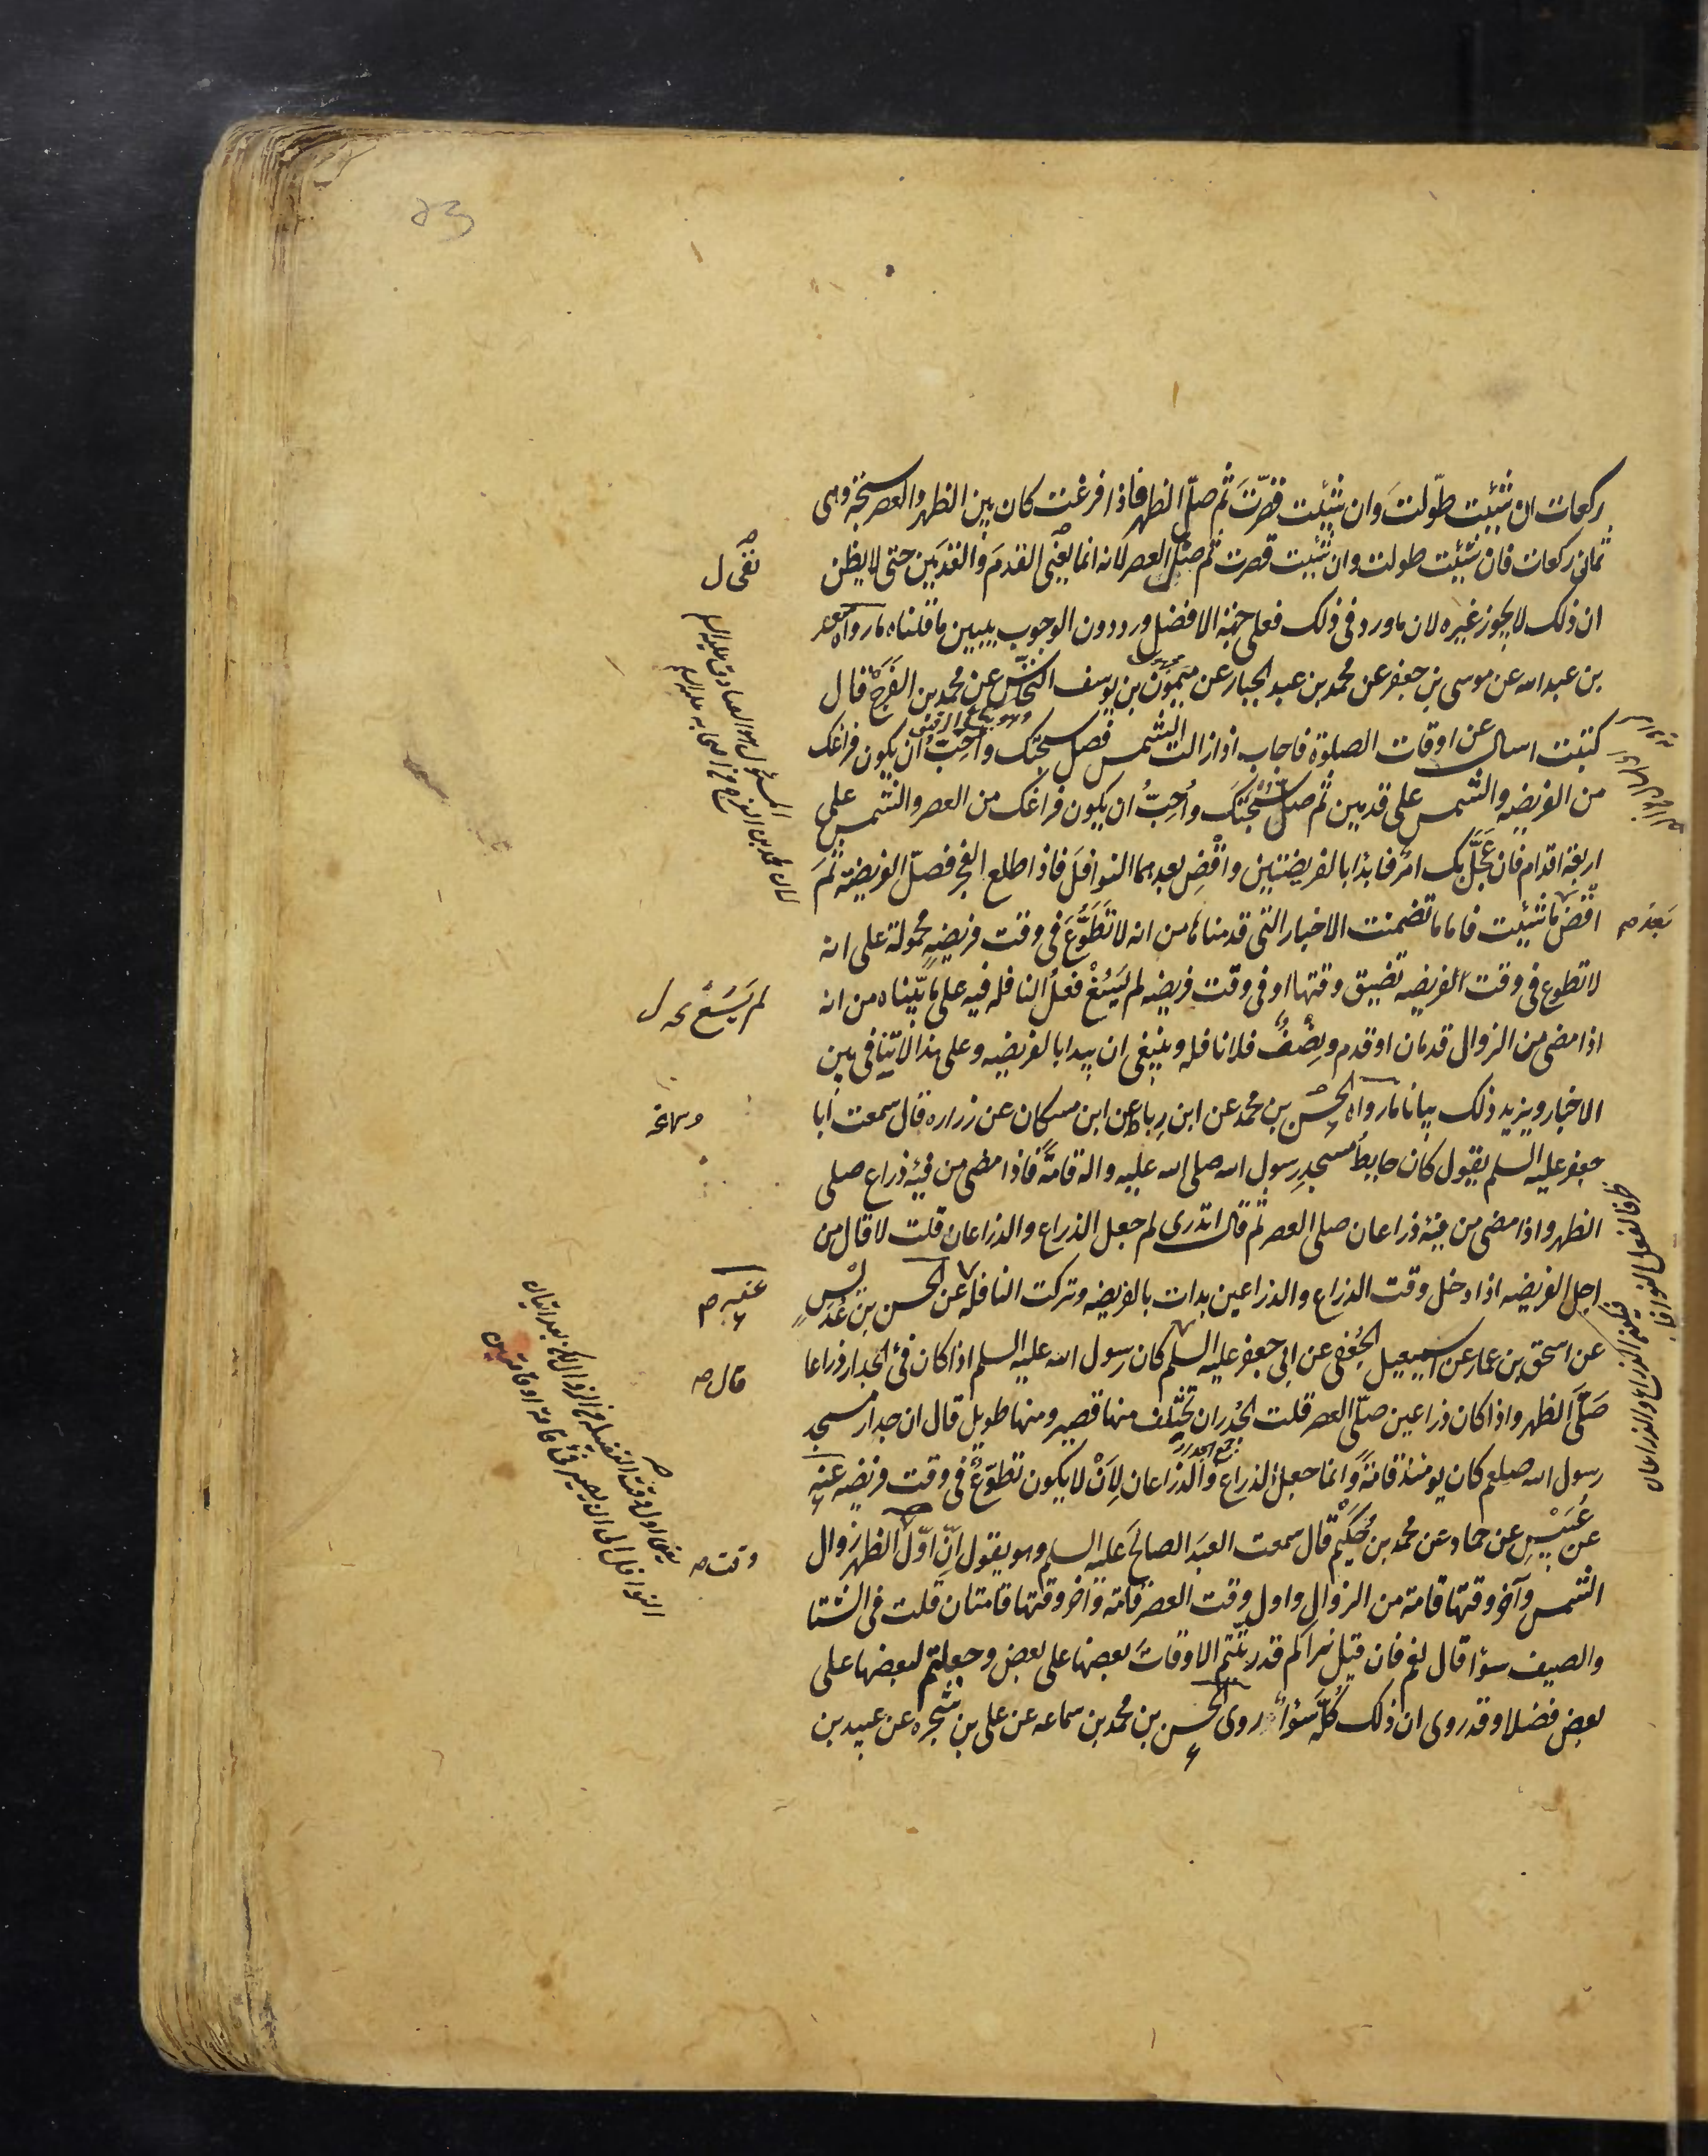 ركعات ان شئت طوّلت وان شئت قصّرتَ ثم صلّ الظهر فاذا فرغت كان بين الظهر والعصر سبحة وهى
ثمان ركعات فان شئت طولت وان شئت قصرت ثم صلّ العصر لانه انما يعنى القدمَ والقدمَين حتى لا يظن
ان ذلك لا يجوز غيره لان ما ورد فى ذلك فعلى جهة الافضل ورد دون الوجوب يبين ما قلناه ما رواه سعد
بن عبد الله عن موسى بن جعفر عن محمد بن عبد الجبار عن ميمون بن يوسف النخّاس عن محمد بن الفَرَج قال
كتبت اسال عن اوقات الصلوة فاجاب اذا زالت الشمس فصل سبحتك واُحِبّ ان يكون فراغك
من الفريضه والشمس على قدمين ثم صلّ سُبْحَتَكَ واُحِبُّ ان يكون فراغك من العصر والشمس على
اربعة اقدام فان عَجَّلَ بك امرٌ فابدا بالفريضتين واقْضِ بعدهما النوافلَ فاذا طلع الفجر فصلّ الفريضة ثمَّ
اقض ما شئت فاما ما تضمنت الاخبار التى قدمناها من انه لا تَطَوُّعَ فى وقت فريضهٍ محمولة على انه
لا تطوع فى وقت الفريضه تضيق وقتها او فى وقت فريضه لم يَسُغْ فعلُ النافله فيه على ما بيّناه من انه
اذا مضى من الزوال قدمان او قدم ونِصْفٌ فلا نافله وينبغى ان يبدا بالفريضه وعلى هذا لا تنافى بين
الاخبار ويزيد ذلك بيانا ما رواه الحسن بن محمد عن ابن رِباط عن ابن مسكان عن زراره قال سمعت ابا
جعفر عليه السلم يقول كان حايطُ مسجدِ رسول الله صلى الله عليه واله قامةً فاذا مضى من فيئه ذراع صلى
الظهر واذا مضى من فيئه ذراعان صلى العصر ثم قال اتدرى لم جعل الذراع والذراعان قلت لا قال من
اجل الفريضه اذا دخل وقت الذراع والذراعين بدات بالفريضه وتركت النافلة عن الحسن بن عُدَيْسٍ
عن اسحق بن عمار عن اسمعيل الجُعْفى عن ابى جعفر عليه السلم كان رسول الله عليه السلم اذا كان فئ الجدار ذراعا
صَلَّى الظهر واذا كان ذراعين صلّى العصر قلت الجُدران تختلف منها قصير ومنها طويل قال ان جدار مسجد
رسول الله صلعم كان يومئذ قامةً وانما جعل الذراع والذراعان لِاَنْ لا يكون تطوّعٌ فى وقت فريضه عنه
عن عُبَيْسٍ عن حماد عن محمد بن حُكَيْم قال سمعت العبدَ الصالحَ عليه السلم وهو يقول انّ اوّل الظهر زوال
الشمس وآخر وقتها قامة من الزوال واول وقت العصر قامة وآخر وقتها قامتان قلت فى الشتا
والصيف سواء قال نعم فان قيل نراكم قد رتّبتم الاوقات بعضها على بعض وجعلتم لبعضها على
بعض فضلا وقد روى ان ذلك كُلّه سَواءٌ روى الحسن بن محمد بن سماعه عن على بن شجره عن عبيد بن
نفى ل
لم يَسُغ
وسماعه
عنه
قال صح
وقت صح
بعد صح